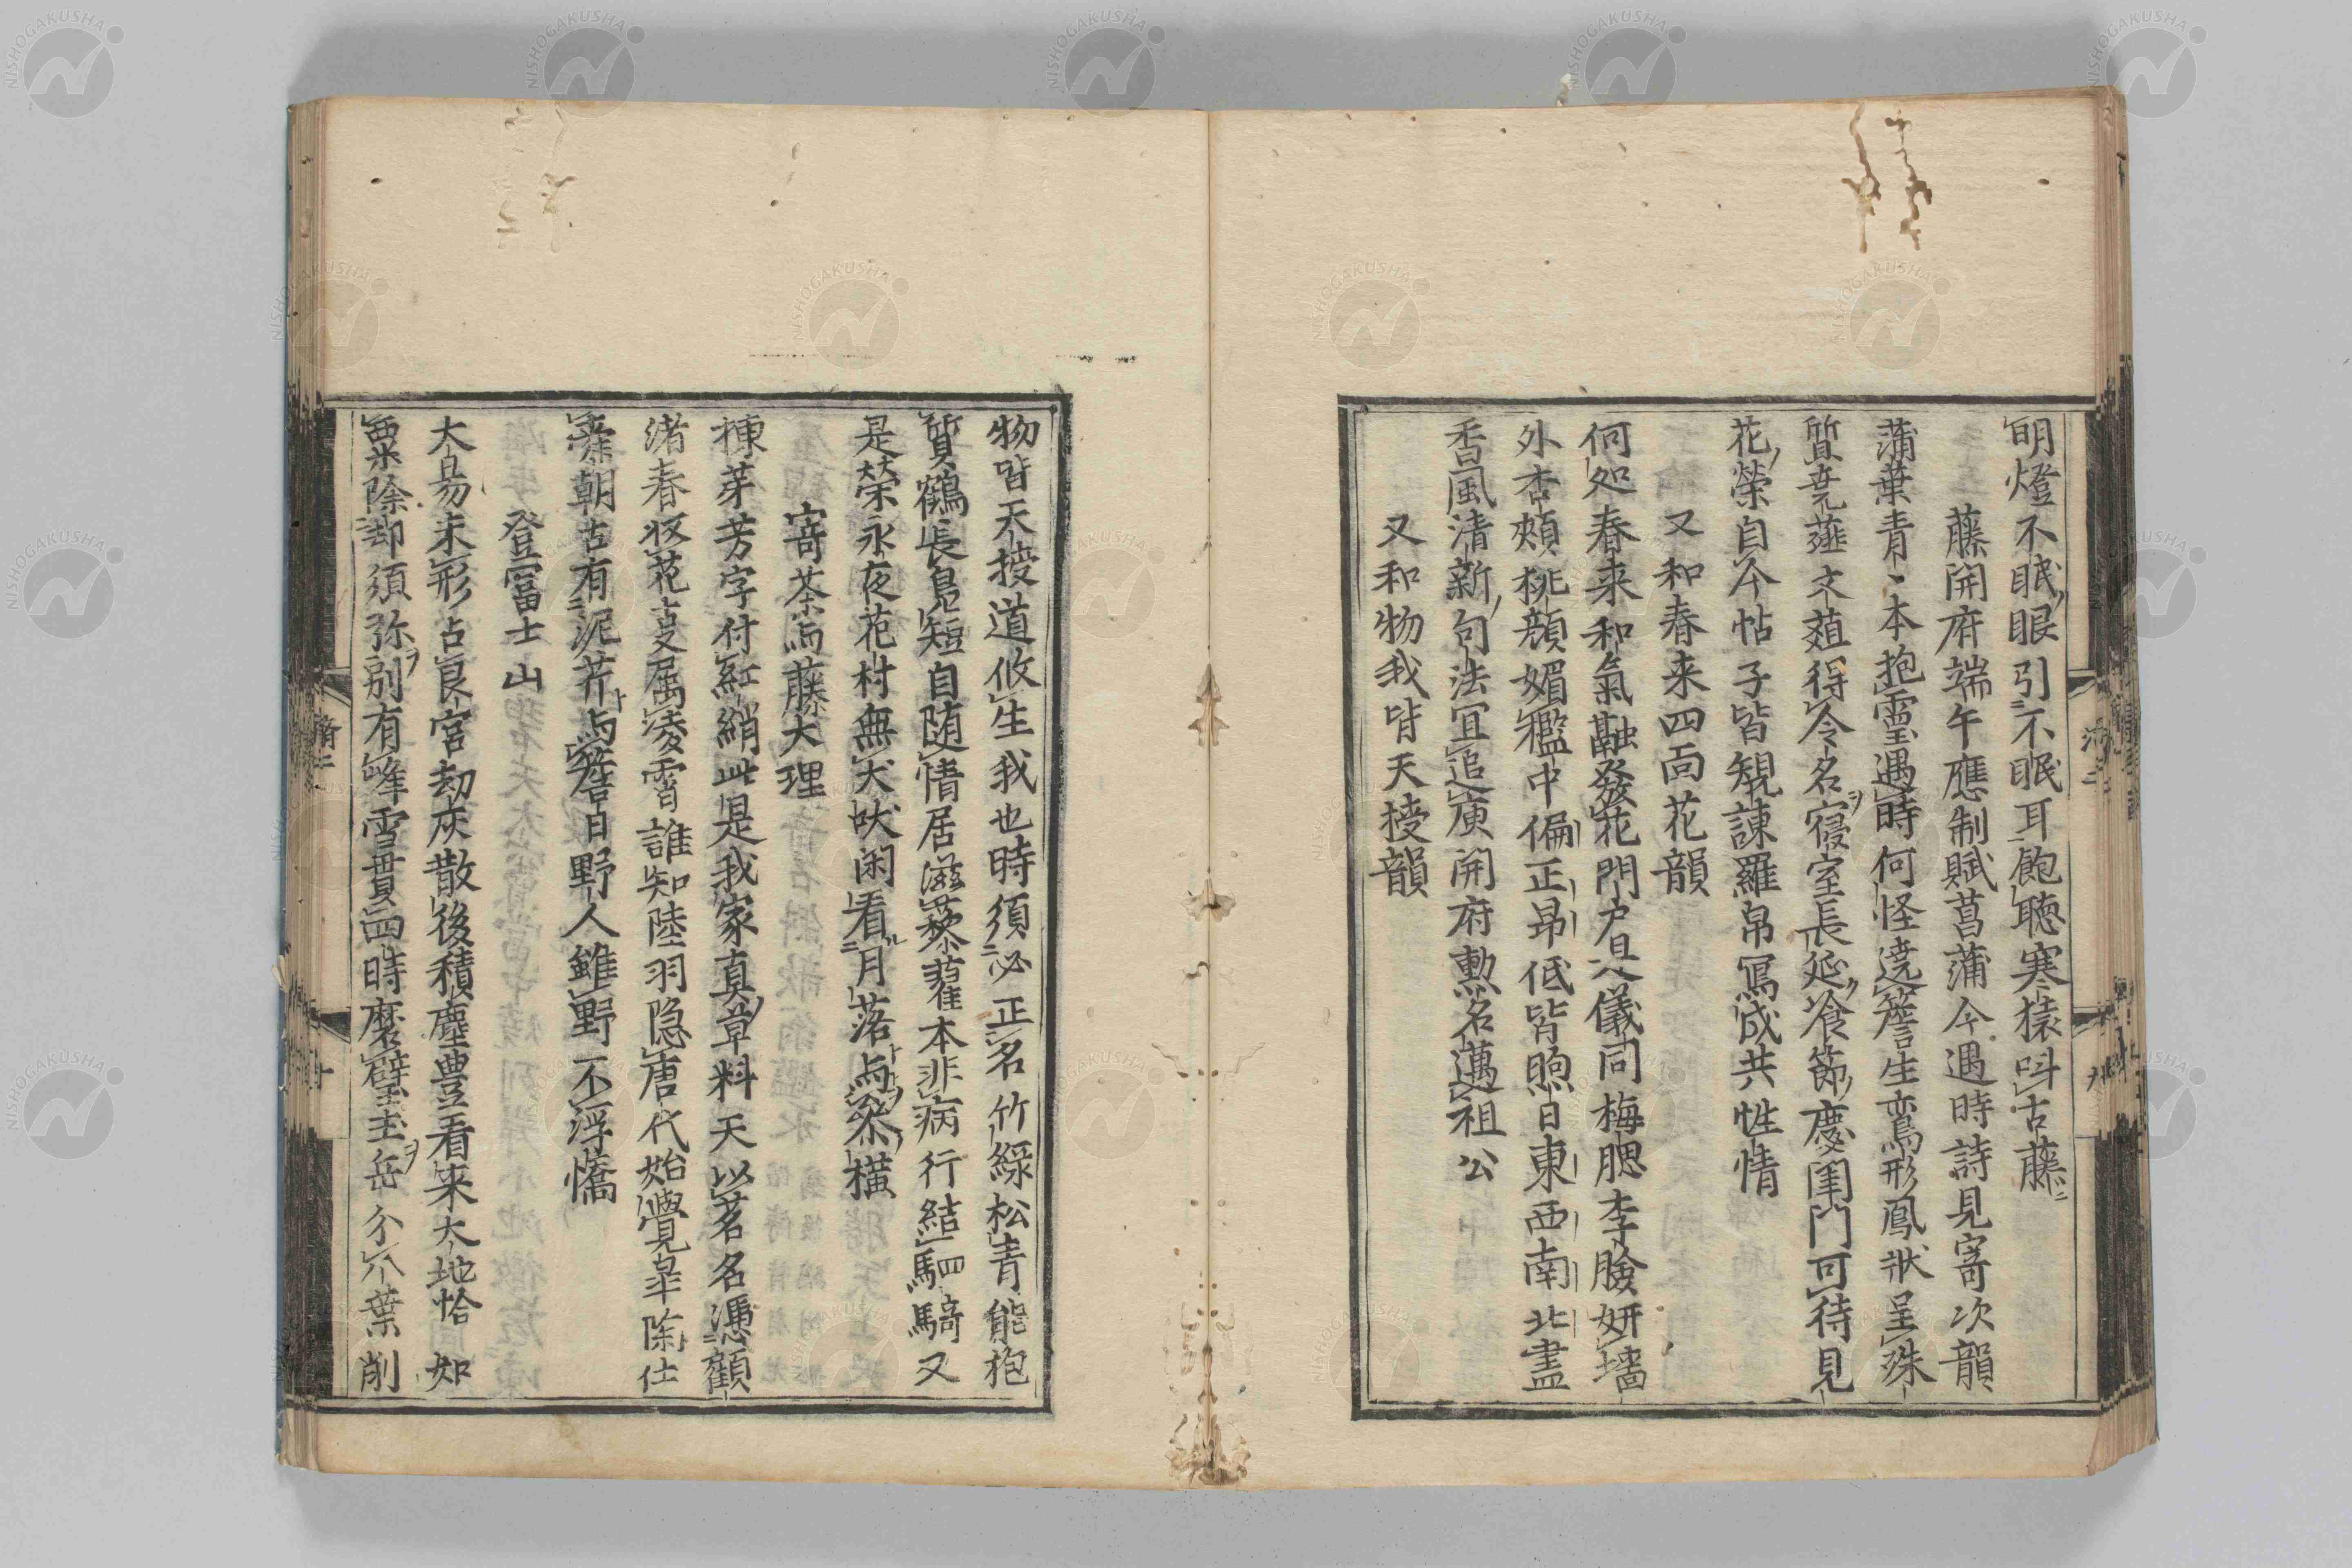 明燈不眠眼引不眠耳飽聴寒猿呌古藤
藤開府端午應制賦菖蒲今遇時詩見寄次韻
蒲葉青〻本抱靈遇時何怪遶簷生鸞形鳳状呈殊
質堯韮文葅得令名寝室長延飡節慶閨門可待見
花榮自今帖子皆規諌羅帛冩成共性情
又和春来四面花韻
何処春来和氣融發花門戸足儀同梅腮李臉妍墻
外杏頰桃顔媚檻中偏正昻低皆煦日東西南北盡
香風清新句法冝追庾開府勲名邁祖公
又和物我皆天授韻
物皆天授道攸生我也時須必正名竹緑松青能抱
質鶴長鳧短自随情居滋藜藿本非病行結駟騎又
是榮永夜花村無犬吠閑看月落与参横
寄茶与藤大理
揀芽芳字付紅綃此是我家真草料天以茗名慿顧
渚春将花㕝属凌霄誰知陸羽隠唐代始覺皐除仕
宋朝古有泥芹与簷日野人雖野不浮憍
登富士山
太易未形占艮宮劫灰散後積塵豊看来大地恰如
粟除却須弥別有峰雪貫四時磨璧玉岳分八葉削